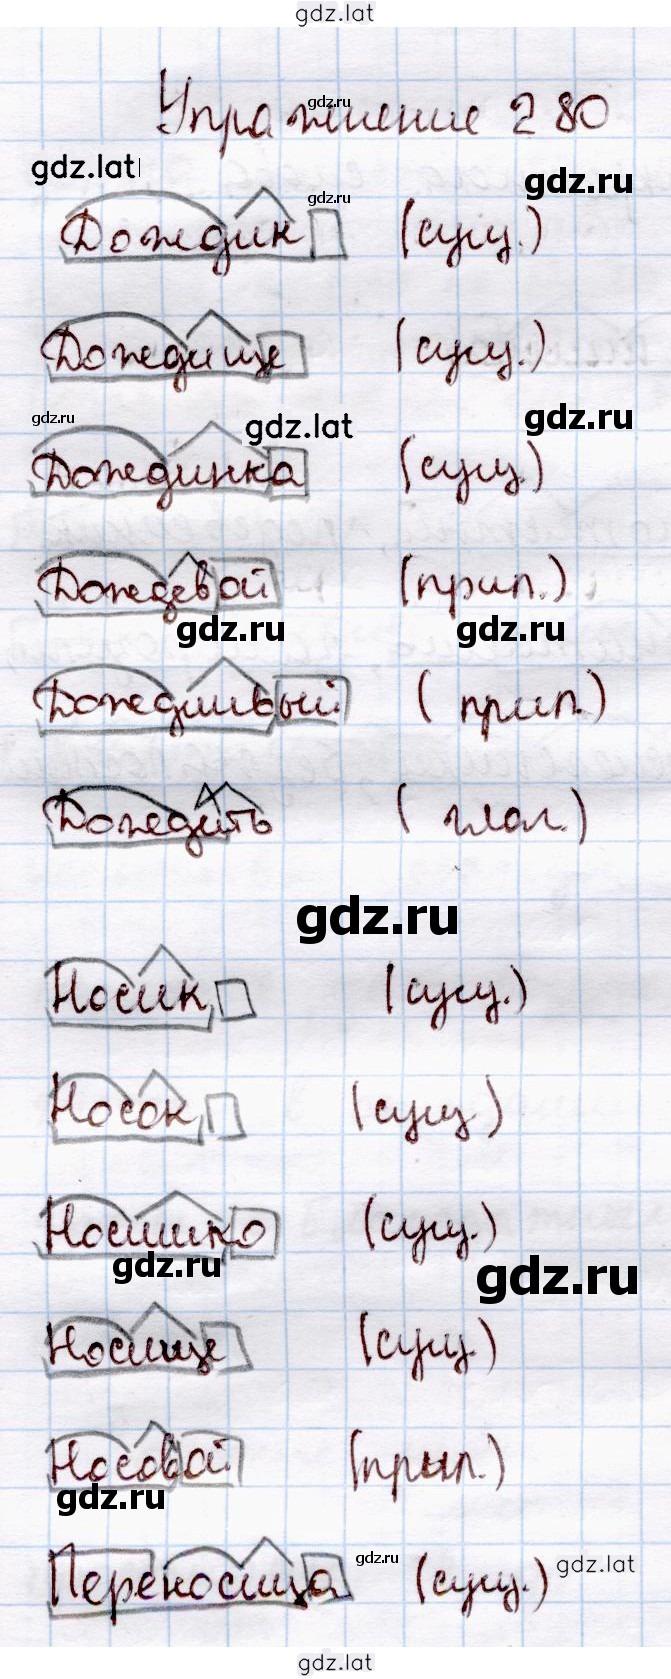 gdz.lat
Упражнение 280
gdz.ru
gdz.lat
gdz.ru
gdz.ru
Дождик (сущ.)
Дождище (сущ.)
gdz.ru
gdz.lat
gdz.ru
Дождинка (сущ.)
Дождевой (прил.)
gdz.ru
gdz.ru
Дождливый (прил.)
Дождить (глаг.)
gdz.ru
Носик (сущ.)
Носок (сущ.)
Носишко (сущ.)
gdz.ru
gdz.ru
Носище (сущ.)
Носовой (прил.)
gdz.ru
Переносица (сущ.)
gdz.ru
gdz.lat
gdz.lat